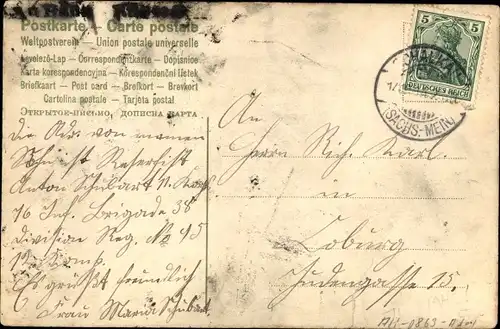 Postkarte – Carte postale
Weltpostverein – Union postale universelle
Levelező-Lap – Correspondentkarte – Dopisnice
Karta korespondencyjna – Korespondenční lístek
Briefkaart – Post card – Brefkort – Brevkort
Cartolina postale – Tarjeta postal
ОТКРЫТОЕ-ПИСЬМО, ДОПИСНА КАРТА
5 5
DEUTSCHES REICH
SCHALKAU
(SACHS-MEIN)
Die Adr. von meinem
Sohn ist Reservist
Anton Schubart
76 Inf. Brigade 38
Division Reg. No 95
12 Komp.
Es grüßt freundlich
Frau Maria Schubart.
An
Herrn Rich. Karl.
in
Coburg
Judengasse 15.